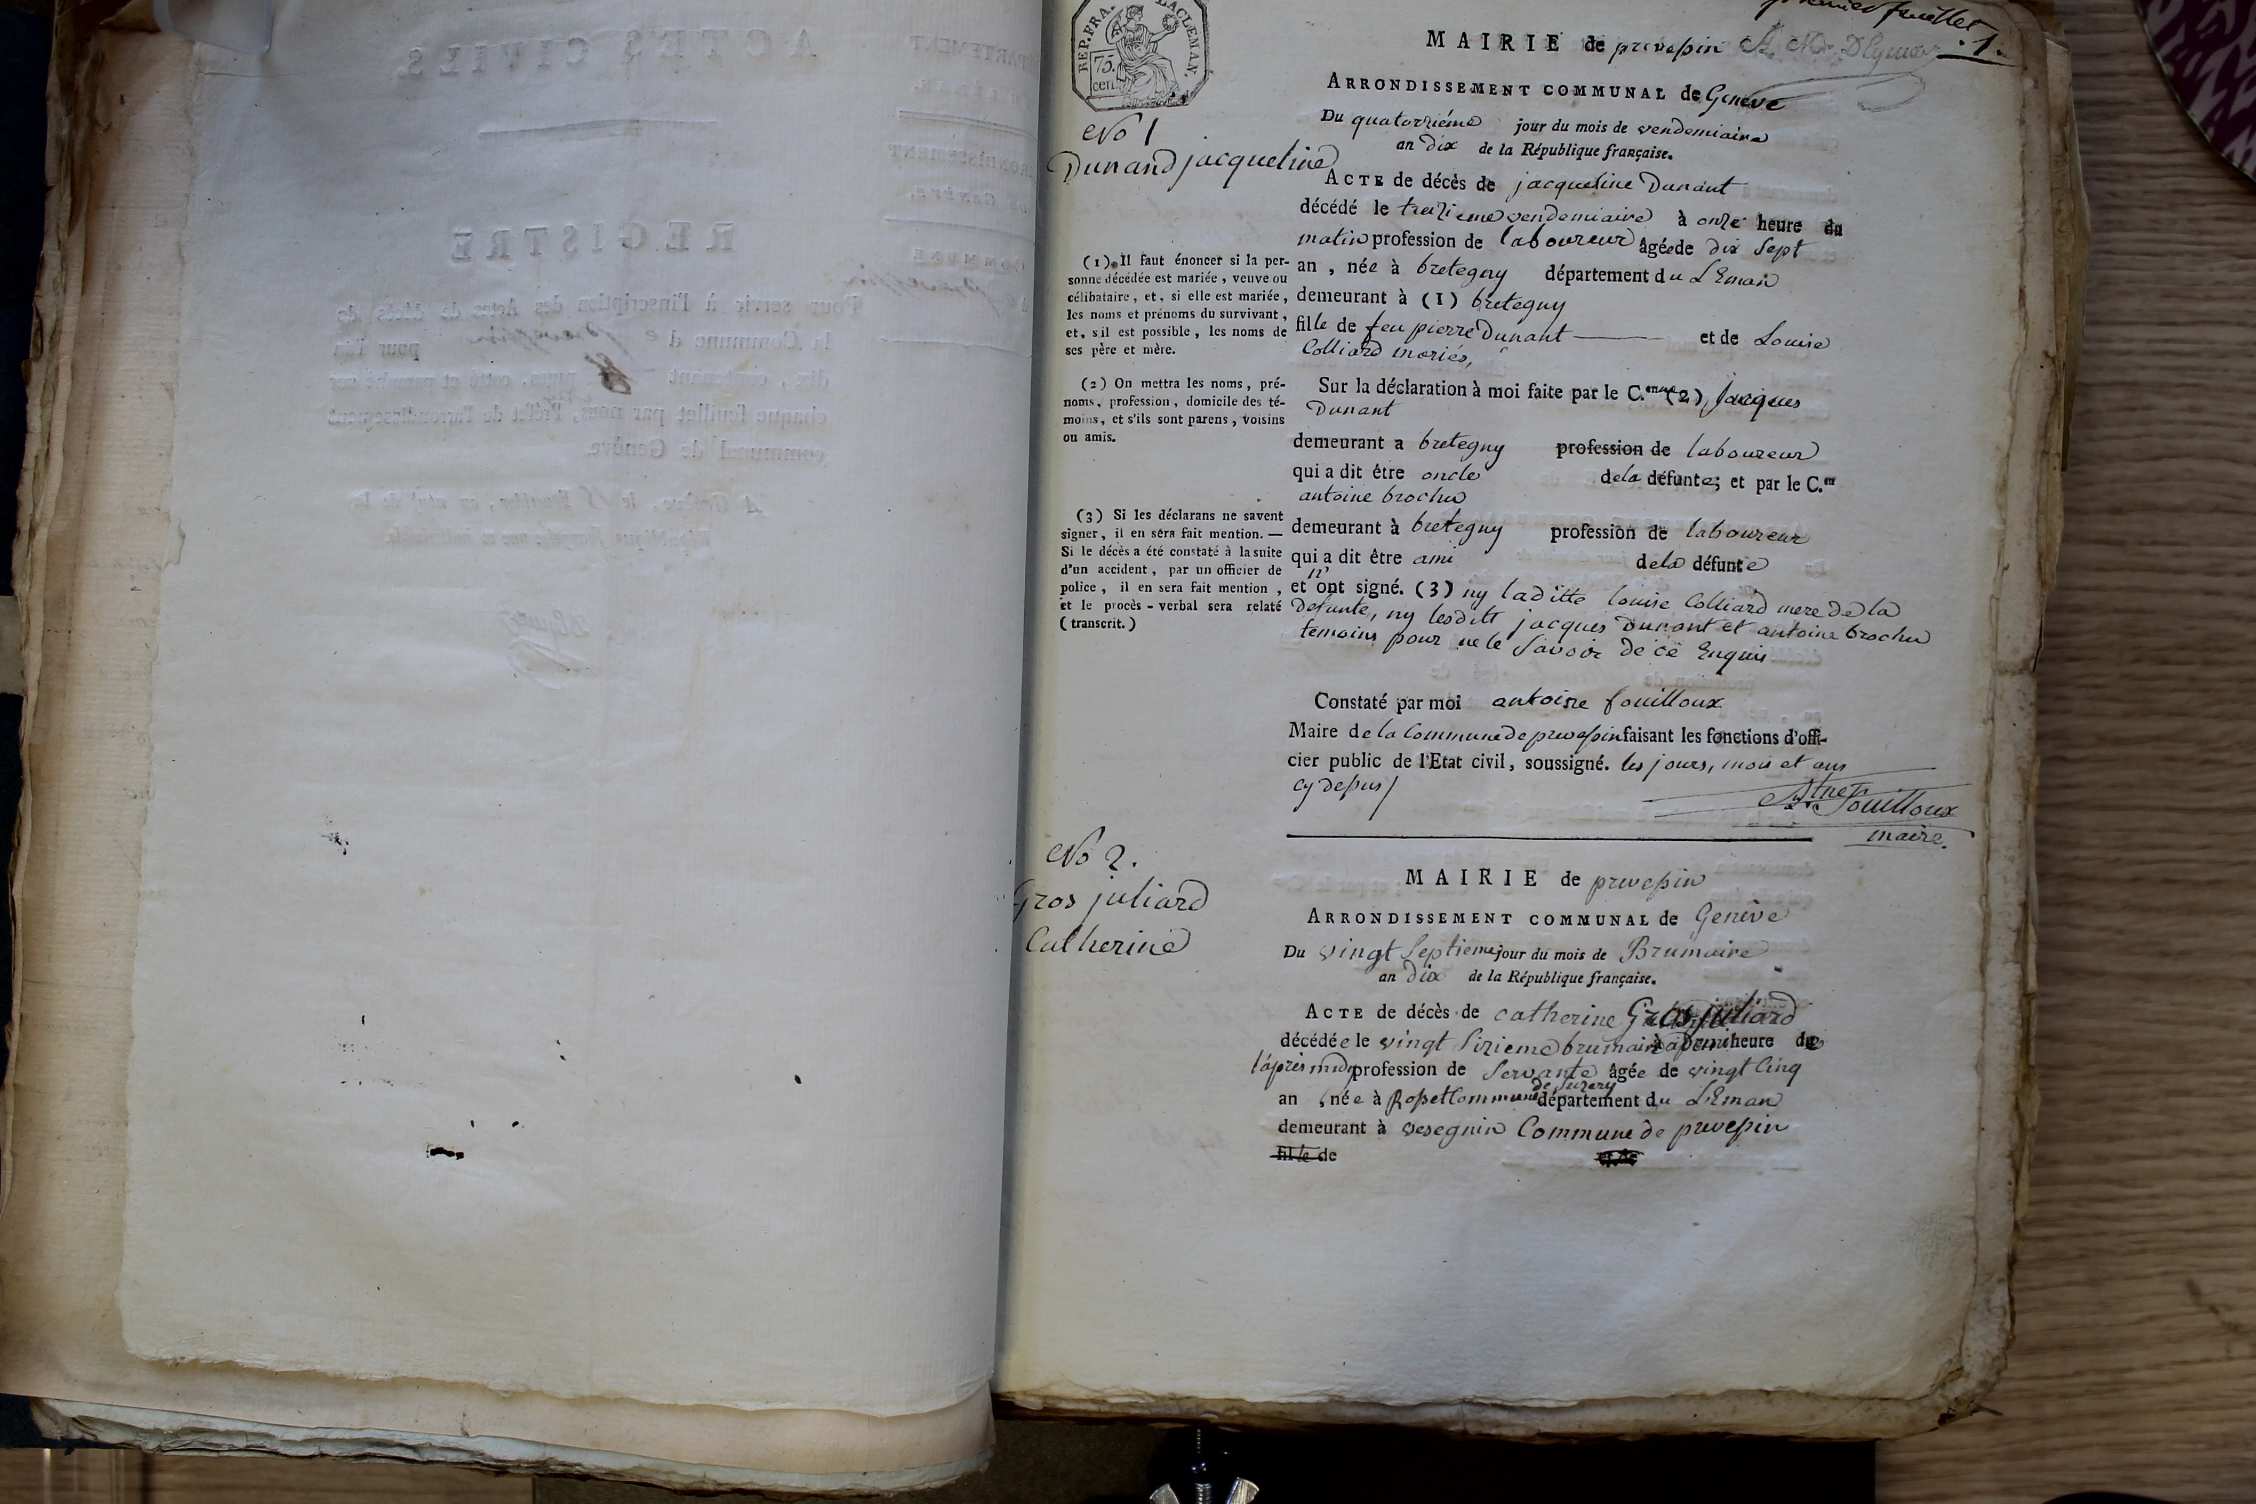 premier feuillet
.1.
REP. FRA.
75.
cen.
MAIRIE de prevessin
ARRONDISSEMENT COMMUNAL de Genève
Du quatorziéme jour du mois de vendemiaire
an dix de la République française.
No 1
Dunand jacqueline
ACTE de décès de jacqueline Dunant
décédé le treizieme vendemiaire à onze heure du
matin profession de laboureur âgée de dix sept
an , née à bretegny département du LEman
demeurant à (1) bretegny
fille de feu pierre Dunant et de Louise
Colliard mariés,
Sur la déclaration à moi faite par le C.en (2) Jacques
Dunant
demeurant a bretegny profession de laboureur
qui a dit être oncle dela défunte; et par le C.en
antoine brochu
demeurant à bretegny profession de laboureur
qui a dit être ami dela défunte
et n'ont signé. (3) ny laditte louise Colliard mere de la
defunte, ny lesditt jacques Dunant et antoine brochu
temoins pour ne le savoir de ce Enquis
Constaté par moi antoine fouilloux
Maire de la Commune de prevessin faisant les fonctions d'offi-
cier public de l'Etat civil, soussigné. les jours, mois et ans
cy depus/
Fouilloux
maire.
(1) Il faut énoncer si la per-
sonne décédée est mariée, veuve ou
célibataire, et, si elle est mariée,
les noms et prénoms du survivant,
et, s'il est possible, les noms de
ses père et mère.
(2) On mettra les noms, pré-
noms, profession, domicile des té-
moins, et s'ils sont parens, voisins
ou amis.
(3) Si les déclarans ne savent
signer, il en sera fait mention. —
Si le décès a été constaté à la suite
d'un accident, par un officier de
police, il en sera fait mention,
et le procès-verbal sera relaté
(transcrit.)
No 2.
Gros juliard
Catherine
MAIRIE de prevessin
ARRONDISSEMENT COMMUNAL de Genève
Du vingt septieme jour du mois de Brumaire
an dix de la République française.
ACTE de décès de catherine Gros juliard
décédée le vingt sixieme brumaire heure de
l'après midy profession de servante âgée de vingt cinq
de
an , née à Commune département du LEman
demeurant à vesegnin Commune de prevessin
fille de et de